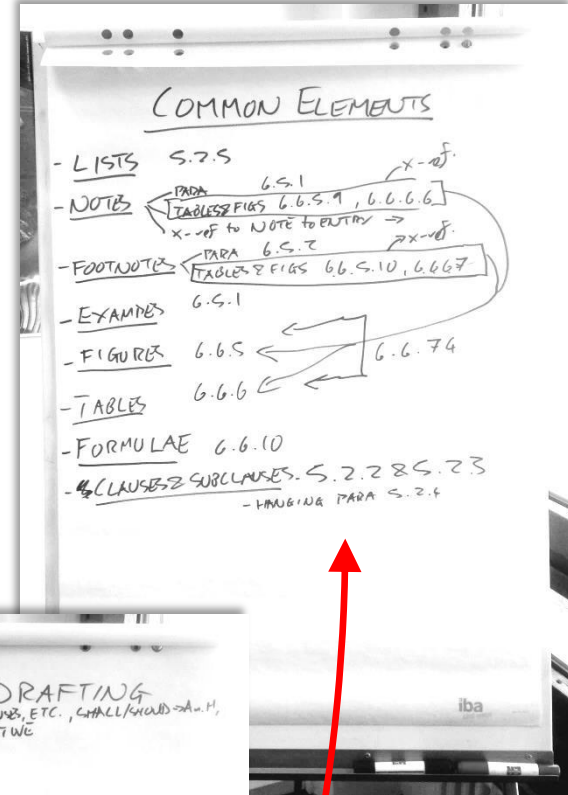 COMMON ELEMENTS
- LISTS 5.2.5
- NOTES PARA 6.5.1 x-ref.
TABLES & FIGS 6.6.5.9, 6.6.6.6
x-ref to NOTE to ENTRY →
- FOOTNOTES PARA 6.5.2 x-ref.
TABLES & FIGS 6.6.5.10, 6.6.6.7
- EXAMPLES 6.5.1
- FIGURES 6.6.5
6.6.74
- TABLES 6.6.6
- FORMULAE 6.6.10
- CLAUSES & SUBCLAUSES. 5.2.2 & 5.2.3
- HANGING PARA 5.2.4
iba
DRAFTING
ETC., SHALL/SHOULD